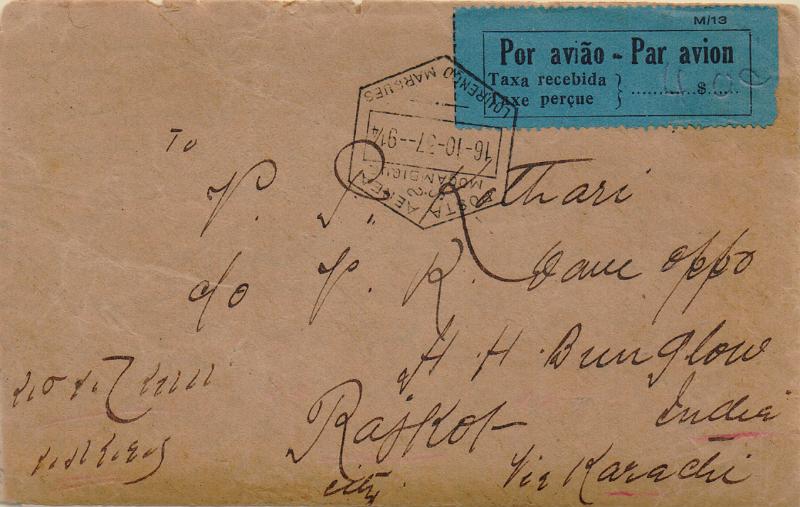 M/13
Por avião - Par avion
Taxa recebida
Taxe perçue } ..........$......
LOURENÇO MARQUES
16-10-37--9¼
MOÇAMBIQUE
POSTA AEREA
To
P. P. Kothari
c/o P. R. Dave oppo
H. H. Bunglow
Rajkot India
city Via Karachi